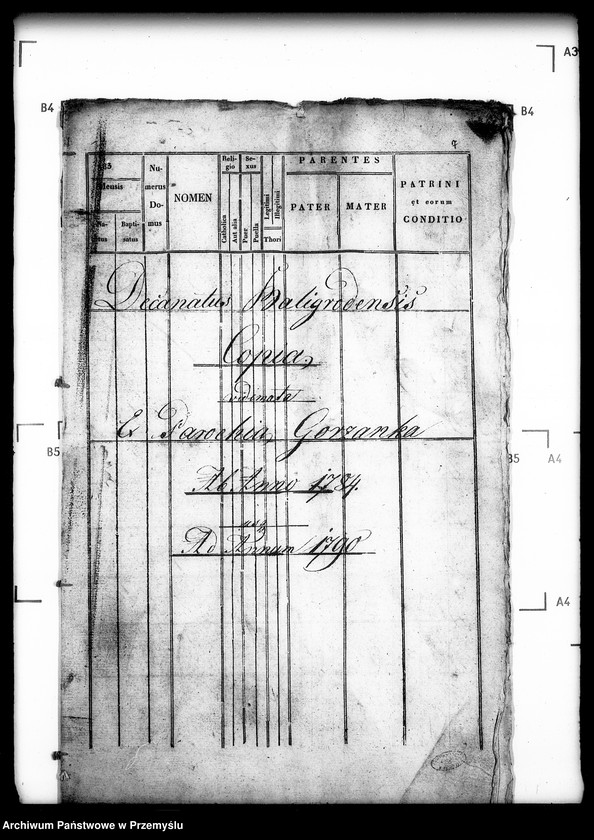 A3
B4
B4
Mensis
Baptisatus
Numerus Domus
NOMEN
Religio
Catholica
Aut alia
Sexus
Puer
Puella
Legitimi
Illegitimi
Thori
PARENTES
PATER
MATER
PATRINI
et eorum
CONDITIO
Decanatus Baligrodensis
Copia
vidimata
E Parochia Gorzanka
B5
B5
A4
Ab Anno 1784.
usq
Ad Annum 1790
A4
Archiwum Państwowe w Przemyślu